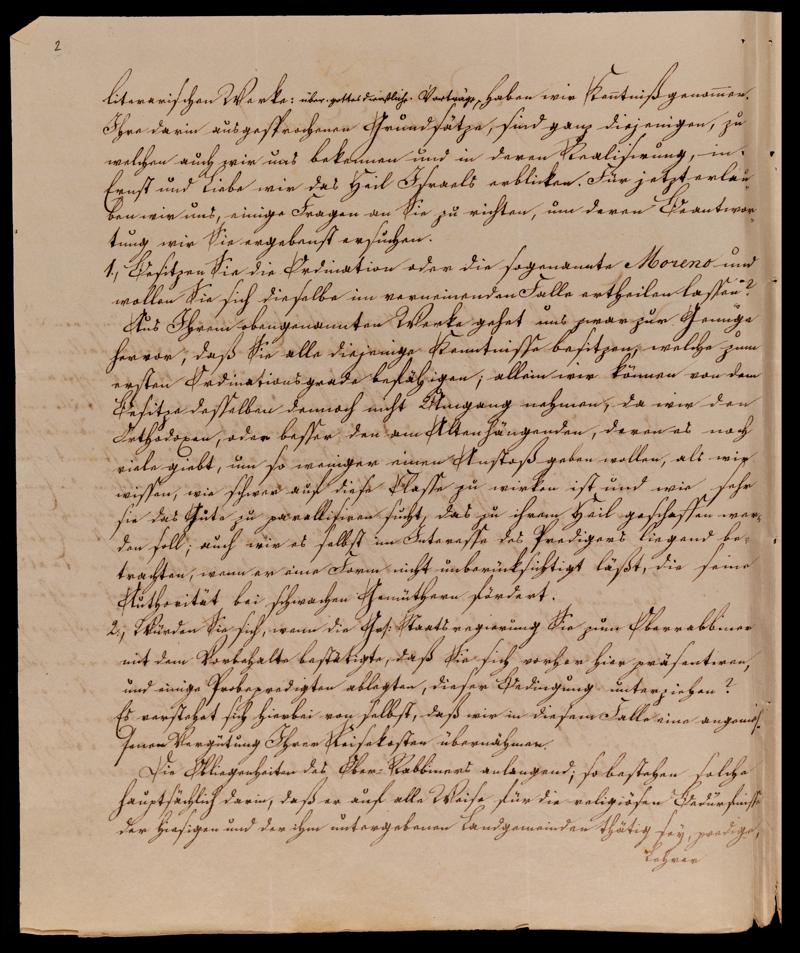 2
literarischen Werke: über gottesdienstliche Vorträge, haben wir Kenntniß genommen.
Ihre darin ausgesprochenen Grundsätze, sind ganz diejenigen, zu
welchen auch wir uns bekennen und in deren Realisirung, in
Ernst und Liebe wir das Heil Israels erblicken. Für jetzt erlau-
ben wir uns, einige Fragen an Sie zu richten, um deren Beantwor-
tung wir Sie ergebenst ersuchen.
1., Besitzen Sie die Ordination oder die sogenannte Moreno und
wollen Sie sich dieselbe im verneinenden Falle ertheilen lassen?
Aus Ihrem obengenannten Werke gehet uns zwar zur Genüge
hervor, daß Sie alle diejenige Kenntnisse besitzen, welche zum
ersten Ordinationsgrade befähigen; allein wir können von dem
Besitze desselben dennoch nicht Umgang nehmen, da wir den
Orthodoxen, oder besser den am Alten hängenden, deren es noch
viele giebt, um so weniger einen Anstoß geben wollen, als wir
wissen, wie schwer auf diese Classe zu wirken ist und wie sehr
sie das Gute zu parallisiren sucht, das zu ihrem Heil geschaffen wer-
den soll; auch wir es selbst im Interesse des Predigers liegend be-
trachten, wenn er eine Form nicht unberücksichtigt läßt, die seine
Authorität bei schwachen Gemüthern fördert.
2., Würden Sie sich, wenn die Staatsregierung Sie zum Oberrabbiner
mit dem Vorbehalte bestätigte, daß Sie sich vorher hier präsentiren,
und einige Probepredigten ablegten, dieser Bedingung unterziehen?
Es verstehet sich hierbei von selbst, daß wir in diesem Falle eine angemes-
senen Vergütung Ihrer Reisekosten übernähmen.
Die Obliegenheiten des Ober-Rabbiners anlangend; so bestehen solche
hauptsächlich darin, daß er auf alle Weise für die religiösen Bedürfnisse
der hiesigen und der ihm untergebenen Landgemeinden thätig sey, predige,
Lehrer